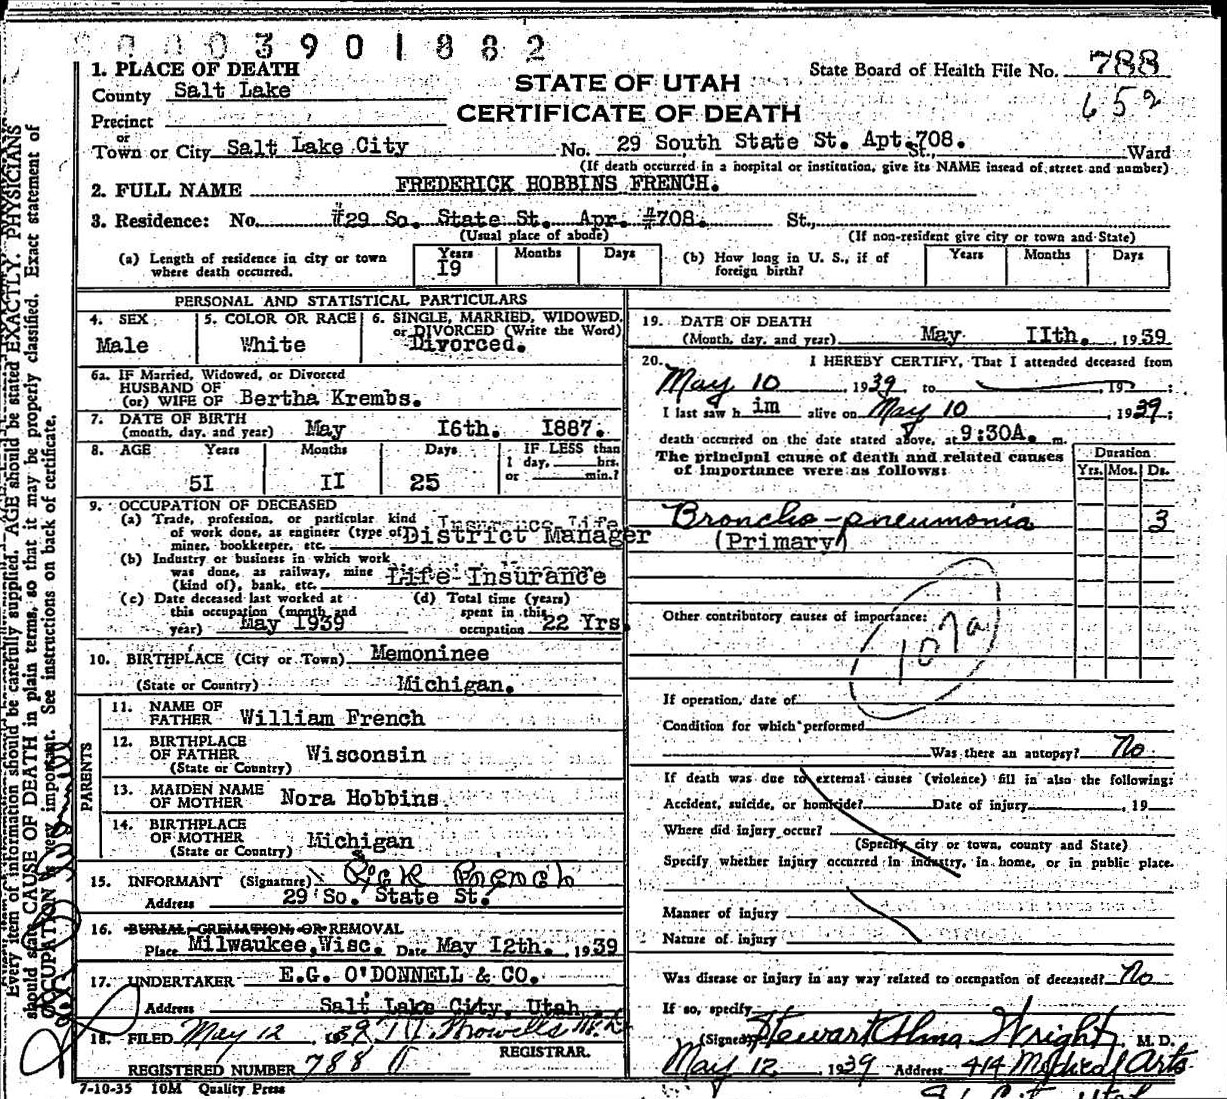 0003901882
1. PLACE OF DEATH
STATE OF UTAH
CERTIFICATE OF DEATH
State Board of Health File No. 788
652
County Salt Lake
Precinct
or
Town or City Salt Lake City No. 29 South State St. Apt. 708. St., Ward
(If death occurred in a hospital or institution, give its NAME insead of street and number)
2. FULL NAME FREDERICK HOBBINS FRENCH.
3. Residence: No. #29 So. State St. Apr. #708. St.,
(Usual place of abode) (If non-resident give city or town and State)
(a) Length of residence in city or town where death occurred. Years I9 Months Days
(b) How long in U. S., if of foreign birth? Years Months Days
PERSONAL AND STATISTICAL PARTICULARS
4. SEX Male
5. COLOR OR RACE White
6. SINGLE, MARRIED, WIDOWED, or DIVORCED (Write the Word) Divorced.
6a. IF Married, Widowed, or Divorced
HUSBAND OF
(or) WIFE OF Bertha Krembs.
7. DATE OF BIRTH
(month, day, and year) May I6th. I887.
8. AGE Years 5I Months II Days 25 IF LESS than 1 day, hrs. or min.?
9. OCCUPATION OF DECEASED
(a) Trade, profession, or particular kind of work done, as engineer (type of miner, bookkeeper, etc. Insurance Life District Manager
(b) Industry or business in which work was done, as railway, mine (kind of), bank, etc. Life Insurance
(c) Date deceased last worked at this occupation (month and year) May 1939
(d) Total time (years) spent in this occupation 22 Yrs.
10. BIRTHPLACE (City or Town) Memoninee
(State or Country) Michigan.
PARENTS
11. NAME OF FATHER William French
12. BIRTHPLACE OF FATHER (State or Country) Wisconsin
13. MAIDEN NAME OF MOTHER Nora Hobbins
14. BIRTHPLACE OF MOTHER (State or Country) Michigan
15. INFORMANT (Signature) Dick French
Address 29 So. State St.
16. BURIAL, CREMATION, OR REMOVAL
Place Milwaukee, Wisc. Date May I2th. , 1939
17. UNDERTAKER E.G. O'DONNELL & CO.
Address Salt Lake City, Utah
18. FILED May 12 , 1939
REGISTRAR.
REGISTERED NUMBER 788
7-10-35 10M Quality Press
19. DATE OF DEATH
(Month, day, and year) May IIth. , 1939
20. I HEREBY CERTIFY, That I attended deceased from
May 10 1939 to , 19 :
I last saw h im alive on May 10 , 1939 :
death occurred on the date stated above, at 9:30A. m.
The principal cause of death and related causes of importance were as follows:
Duration
Yrs. Mos. Ds.
Broncho-pneumonia 3
(Primary)
Other contributory causes of importance:
107a
If operation, date of
Condition for which performed
Was there an autopsy? No
If death was due to external causes (violence) fill in also the following:
Accident, suicide, or homicide? Date of injury , 19
Where did injury occur?
(Specify city or town, county and State)
Specify whether injury occurred in industry, in home, or in public place.
Manner of injury
Nature of injury
Was disease or injury in any way related to occupation of deceased? No
If so, specify
(Signed) Stewart Alma Wright, M. D.
May 12 1939 Address 414 Medical Arts
Every item of information should be carefully supplied. AGE should be stated EXACTLY. PHYSICIANS
should state CAUSE OF DEATH in plain terms, so that it may be properly classified. Exact statement of
OCCUPATION is very important. See instructions on back of certificate.